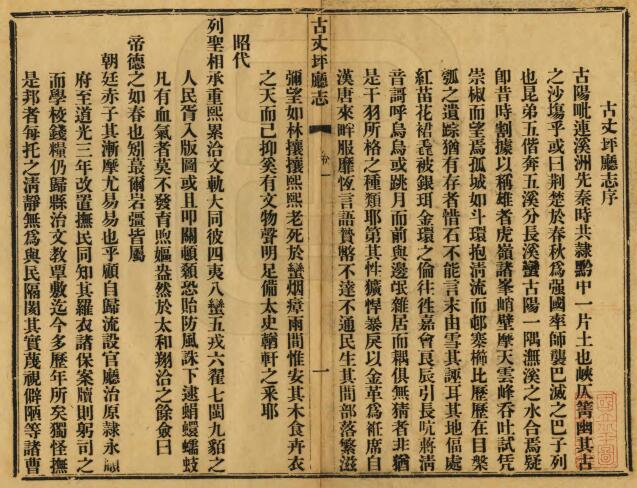 古丈坪廳志序
古陽毗連溪洲先秦時共隸黔中一片土也峽仄箐幽其古
之沙塲乎或曰荆楚於春秋為强國率師襲巴滅之巴子列
也昆弟五偕奔五溪分長溪蠻古陽一隅潕溪之水合焉疑
卽昔時割據以稱雄者虎嶺諸峯峭壁摩天雲峰呑吐試凭
崇椒而望焉孤城如斗環抱淸流而邨寨櫛比歷歷在目槃
瓠之遺踪猶有存者惜石不能言末由雪其誣耳其地偪處
紅苗花裙毳被銀珥金環之倫往徃嘉會良辰引長吭將淸
音謌呼烏烏或跳月而前與邊氓雜居而耦俱無猜者非猶
是干羽所格之種類耶第其性獷悍暴戾以金革為衽席自
漢唐來畔服靡恆言語贄幣不達不通民生其間部落繁滋
古丈坪廳志
卷一
一
彌望如林攘攘熙熙老死於蠻烟瘴雨間惟安其木食卉衣
之天而已抑奚有文物聲明足備太史輶軒之釆耶
昭代
列聖相承重熙累洽文軌大同彼四夷八蠻五戎六翟七閩九貉之
人民胥入版圖或且叩關頓顙恐貽防風誅下逮蜎蠉蠕蚑
凡有血氣者莫不發育煦嫗盎然於太和翔洽之餘僉曰
帝德之如春也矧蕞爾岩疆皆屬
朝廷赤子其漸摩尤易易也乎顧自歸流設官廳治原隸永順
府至道光三年改置撫民同知其羅衣諸保案牘則躬司之
而學校錢糧仍歸縣治文教覃敷迄今多歷年所矣獨怪撫
是邦者每托之淸靜無為與民隔閡其實蔑視僻陋等諸曹